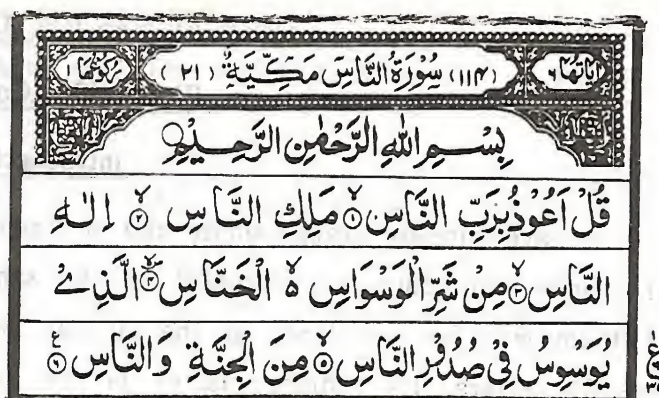 اٰيَاتُهَا ٦ (١١٤) سُوْرَةُ النَّاسِ مَكِّيَّةٌ (٢١) رُكُوْعُهَا ١
بِسْمِ اللهِ الرَّحْمٰنِ الرَّحِيْمِ
قُلْ اَعُوْذُ بِرَبِّ النَّاسِ ۙ﴿١﴾ مَلِكِ النَّاسِ ۙ﴿٢﴾ اِلٰهِ
النَّاسِ ۙ﴿٣﴾ مِنْ شَرِّ الْوَسْوَاسِ ەۙ الْخَنَّاسِ ۪ۙ﴿٤﴾ الَّذِىْ
يُوَسْوِسُ فِىْ صُدُوْرِ النَّاسِ ۙ﴿٥﴾ مِنَ الْجِنَّةِ وَ النَّاسِ ﴿٦﴾